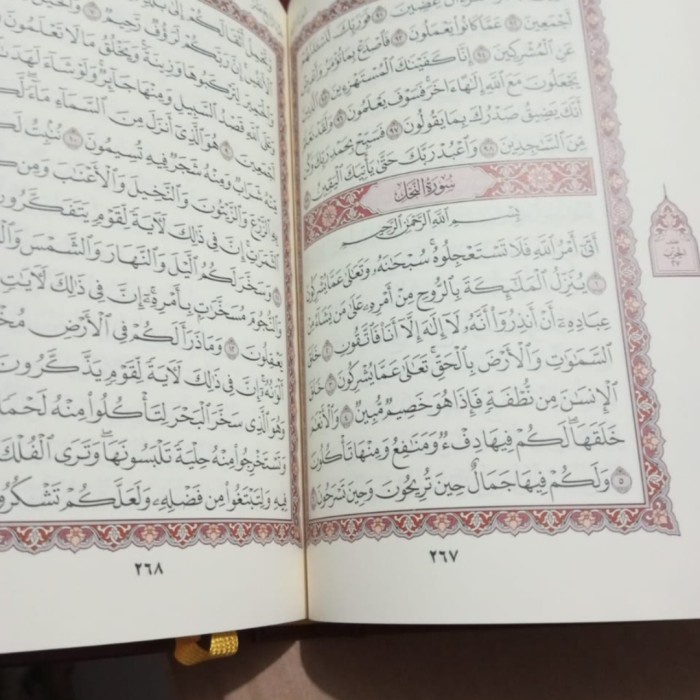 عِضِينَ ٩١ فَوَرَبِّكَ لَنَسْـَٔلَنَّهُمْ
أَجْمَعِينَ ٩٢ عَمَّا كَانُوا۟ يَعْمَلُونَ ٩٣ فَٱصْدَعْ بِمَا تُؤْمَرُ وَأَعْرِضْ
عَنِ ٱلْمُشْرِكِينَ ٩٤ إِنَّا كَفَيْنَٰكَ ٱلْمُسْتَهْزِءِينَ ٩٥ ٱلَّذِينَ
يَجْعَلُونَ مَعَ ٱللَّهِ إِلَٰهًا ءَاخَرَ فَسَوْفَ يَعْلَمُونَ ٩٦ وَلَقَدْ نَعْلَمُ
أَنَّكَ يَضِيقُ صَدْرُكَ بِمَا يَقُولُونَ ٩٧ فَسَبِّحْ بِحَمْدِ رَبِّكَ وَكُن
مِّنَ ٱلسَّٰجِدِينَ ٩٨ وَٱعْبُدْ رَبَّكَ حَتَّىٰ يَأْتِيَكَ ٱلْيَقِينُ ٩٩
سُورَةُ النَّحْلِ
بِسْمِ ٱللَّهِ ٱلرَّحْمَٰنِ ٱلرَّحِيمِ
أَتَىٰٓ أَمْرُ ٱللَّهِ فَلَا تَسْتَعْجِلُوهُ سُبْحَٰنَهُۥ وَتَعَٰلَىٰ عَمَّا يُشْرِكُونَ
١ يُنَزِّلُ ٱلْمَلَٰٓئِكَةَ بِٱلرُّوحِ مِنْ أَمْرِهِۦ عَلَىٰ مَن يَشَآءُ مِنْ
عِبَادِهِۦٓ أَنْ أَنذِرُوٓا۟ أَنَّهُۥ لَآ إِلَٰهَ إِلَّآ أَنَا۠ فَٱتَّقُونِ ٢ خَلَقَ
ٱلسَّمَٰوَٰتِ وَٱلْأَرْضَ بِٱلْحَقِّ تَعَٰلَىٰ عَمَّا يُشْرِكُونَ ٣ خَلَقَ
ٱلْإِنسَٰنَ مِن نُّطْفَةٍ فَإِذَا هُوَ خَصِيمٌ مُّبِينٌ ٤ وَٱلْأَنْعَٰمَ
خَلَقَهَا لَكُمْ فِيهَا دِفْءٌ وَمَنَٰفِعُ وَمِنْهَا تَأْكُلُونَ
٥ وَلَكُمْ فِيهَا جَمَالٌ حِينَ تُرِيحُونَ وَحِينَ تَسْرَحُونَ ٦
٢٦٧
وَتَحْمِلُ أَثْقَالَكُمْ إِلَىٰ بَلَدٍ
ٱلْأَنفُسِ إِنَّ رَبَّكُمْ لَرَءُوفٌ رَّحِيمٌ ٧ وَٱلْخَيْلَ
وَٱلْحَمِيرَ لِتَرْكَبُوهَا وَزِينَةً وَيَخْلُقُ مَا لَا تَعْلَمُونَ
وَعَلَى ٱللَّهِ قَصْدُ ٱلسَّبِيلِ وَمِنْهَا جَآئِرٌ وَلَوْ شَآءَ لَهَدَىٰكُمْ
أَجْمَعِينَ ٩ هُوَ ٱلَّذِىٓ أَنزَلَ مِنَ ٱلسَّمَآءِ مَآءً لَّكُم
مِّنْهُ شَرَابٌ وَمِنْهُ شَجَرٌ فِيهِ تُسِيمُونَ ١٠ يُنۢبِتُ لَكُم
بِهِ ٱلزَّرْعَ وَٱلزَّيْتُونَ وَٱلنَّخِيلَ وَٱلْأَعْنَٰبَ وَمِن كُلِّ
ٱلثَّمَرَٰتِ إِنَّ فِى ذَٰلِكَ لَءَايَةً لِّقَوْمٍ يَتَفَكَّرُونَ
وَسَخَّرَ لَكُمُ ٱلَّيْلَ وَٱلنَّهَارَ وَٱلشَّمْسَ وَٱلْ
وَٱلنُّجُومُ مُسَخَّرَٰتٌۢ بِأَمْرِهِۦٓ إِنَّ فِى ذَٰلِكَ لَءَايَٰتٍ
يَعْقِلُونَ ١٢ وَمَا ذَرَأَ لَكُمْ فِى ٱلْأَرْضِ مُخْ
أَلْوَٰنُهُۥٓ إِنَّ فِى ذَٰلِكَ لَءَايَةً لِّقَوْمٍ يَذَّكَّرُونَ
وَهُوَ ٱلَّذِى سَخَّرَ ٱلْبَحْرَ لِتَأْكُلُوا۟ مِنْهُ لَحْمًا
وَتَسْتَخْرِجُوا۟ مِنْهُ حِلْيَةً تَلْبَسُونَهَا وَتَرَى ٱلْفُلْكَ
فِيهِ وَلِتَبْتَغُوا۟ مِن فَضْلِهِۦ وَلَعَلَّكُمْ تَشْكُرُونَ
٢٦٨